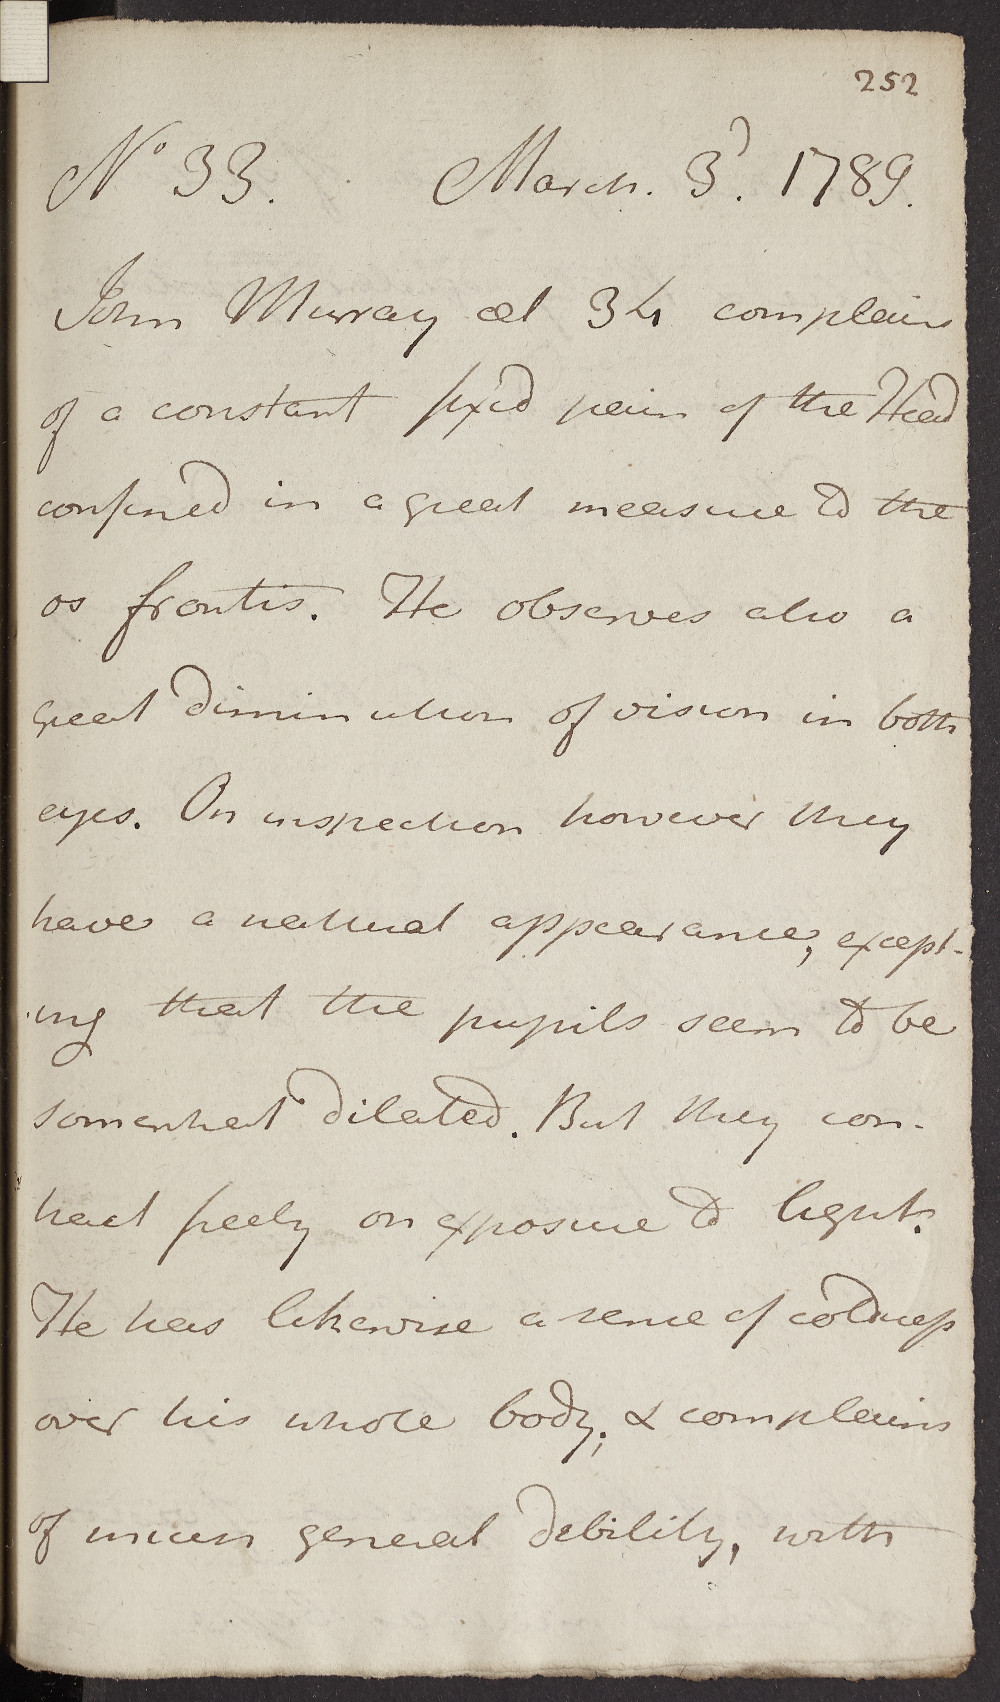 252
No 33. March. 3d. 1789.
John Murray æt 34 complains
of a constant fix'd pain of the Head
confined in a great measure to the
os frontis. He observes also a
great diminution of vision in both
eyes. On inspection however they
have a natural appearance, except-
ing that the pupils seem to be
somewhat dilated. But they con-
tract freely on exposure to light.
He has likewise a sense of coldness
over his whole body; & complains
of much general debility, with